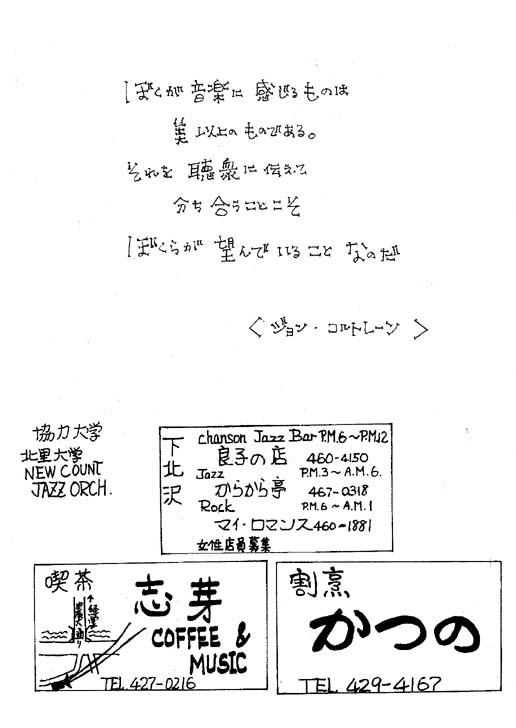 ぼくが 音楽に 感じるものは
美 以上の ものである。
それを 聴衆に 伝えて
分ち合うことこそ
ぼくらが 望んで いること なのだ
〈 ジョン・コルトレーン 〉
協力大学
北里大学
NEW COUNT
JAZZ ORCH.
下北沢
chanson Jazz Bar P.M.6〜P.M.12
良子の店 460-4150
Jazz P.M.3〜A.M.6.
からから亭 467-0318
Rock P.M.6〜A.M.1
マイ・ロマンス 460-1881
女性店員募集
喫茶
志芽
COFFEE &
MUSIC
TEL 427-0216
割烹
かつの
TEL 429-4167